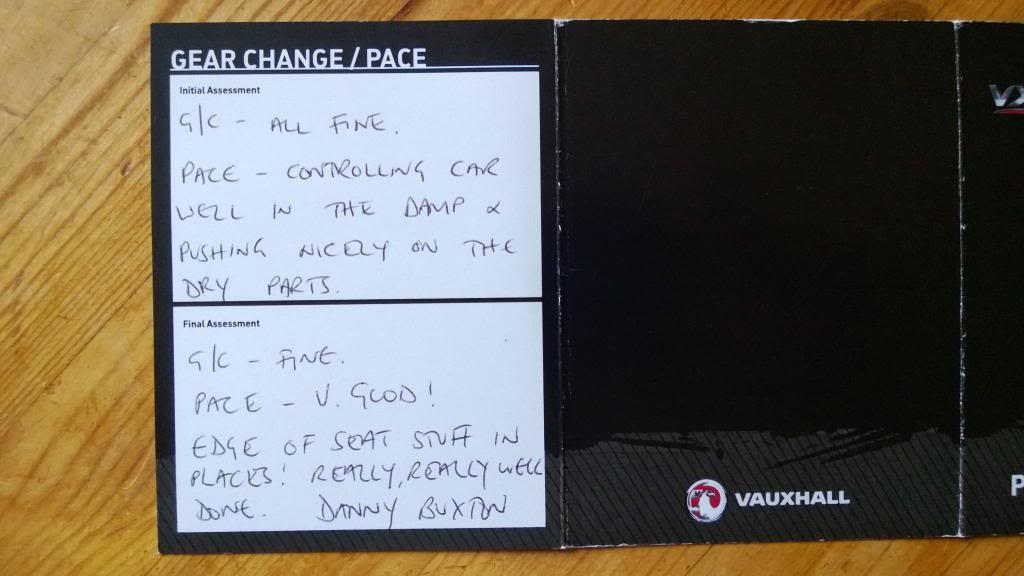 GEAR CHANGE / PACE
Initial Assessment
G/C - ALL FINE.
PACE - CONTROLLING CAR
WELL IN THE DAMP &
PUSHING NICELY ON THE
DRY PARTS.
Final Assessment
G/C - FINE.
PACE - V. GOOD!
EDGE OF SEAT STUFF IN
PLACES! REALLY, REALLY WELL
DONE. DANNY BUXTON
VAUXHALL
VX
P